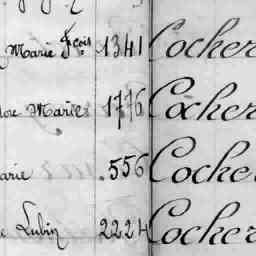 Marie Fçois 1341 Cocher
Marie 1776 Cocher
arie 556 Cocher
Lubin 2224 Cocher